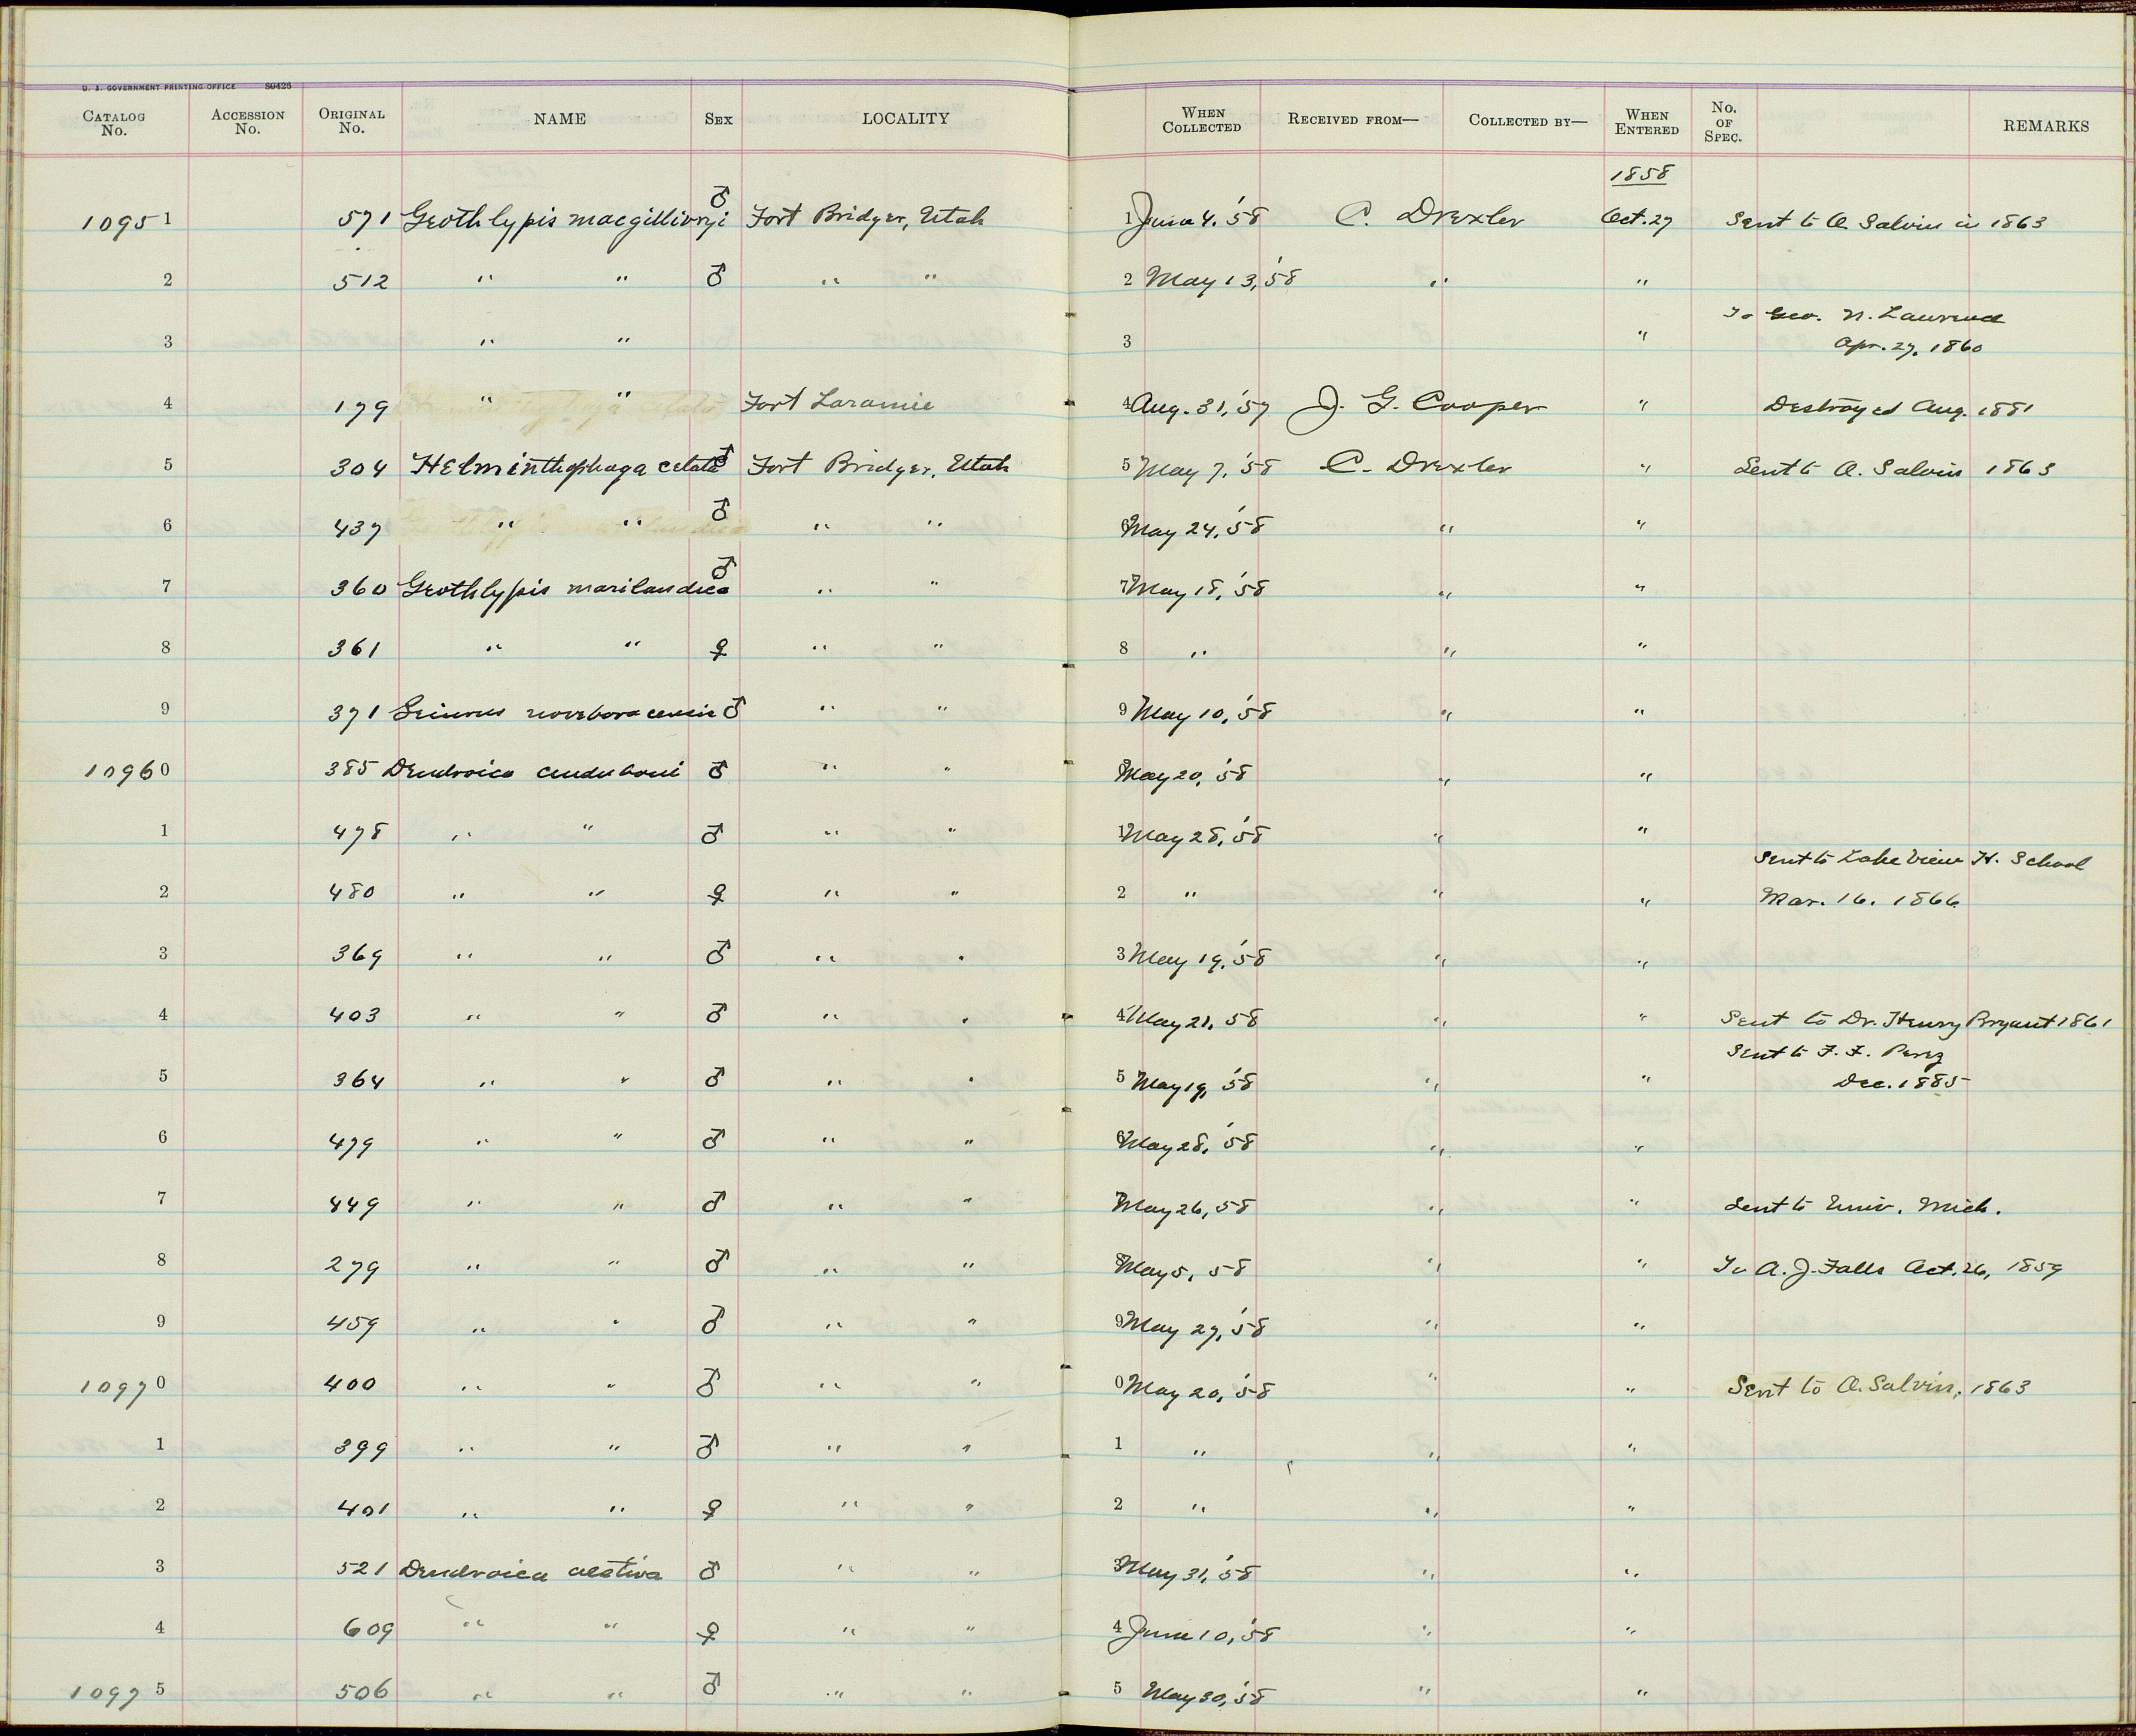 U. S. GOVERNMENT PRINTING OFFICE 80426
CATALOG No. ACCESSION No. ORIGINAL No. NAME SEX LOCALITY WHEN COLLECTED RECEIVED FROM— COLLECTED BY— WHEN ENTERED No. OF SPEC. REMARKS
1858
10951 571 Geothlypis macgillivryi ♂ Fort Bridger, Utah 1 June 4, '58 C. Drexler Oct. 27 Sent to O. Salvin in 1863
2 512 " " ♂ " " 2 May 13, '58 " "
To Geo. N. Lawrence
3 " " 3 " Apr. 27, 1860
4 179 " " Fort Laramie 4 Aug. 31, '57 J. G. Cooper " Destroyed Aug. 1881
5 304 Helminthophaga celata ♂ Fort Bridger, Utah 5 May 7, '58 C. Drexler " Sent to O. Salvin 1863
6 437 " " ♂ " " 6 May 24, '58 " "
7 360 Geothlypis marilandica ♂ " " 7 May 18, '58 " "
8 361 " " ♀ " " 8 " " "
9 371 Seiurus noveboracensis ♂ " " 9 May 10, '58 " "
10960 385 Dendroica auduboni ♂ " " 0 May 20, '58 " "
1 478 " " ♂ " " 1 May 28, '58 " "
Sent to Lake View H. School
2 480 " " ♀ " " 2 " " " Mar. 16. 1866
3 369 " " ♂ " " 3 May 19, '58 " "
4 403 " " ♂ " " 4 May 21, 58 " " Sent to Dr. Henry Bryant 1861
Sent to F. F.
5 364 " " ♂ " " 5 May 19, '58 " " Dec. 1885
6 479 " " ♂ " " 6 May 28, '58 " "
7 449 " " ♂ " " 7 May 26, 58 " " Sent to Univ. Mich.
8 279 " " ♂ " " 8 May 5, 58 " " To A. J. Falls Oct. 26, 1859
9 459 " " ♂ " " 9 May 27, '58 " "
10970 400 " " ♂ " " 0 May 20, '58 " " Sent to O. Salvin, 1863
1 399 " " ♂ " " 1 " " "
2 401 " " ♀ " " 2 " " "
3 521 Dendroica aestiva ♂ " " 3 May 31, '58 " "
4 609 " " ♀ " " 4 June 10, '58 " "
10975 506 " " ♂ " " 5 May 30, '58 " "